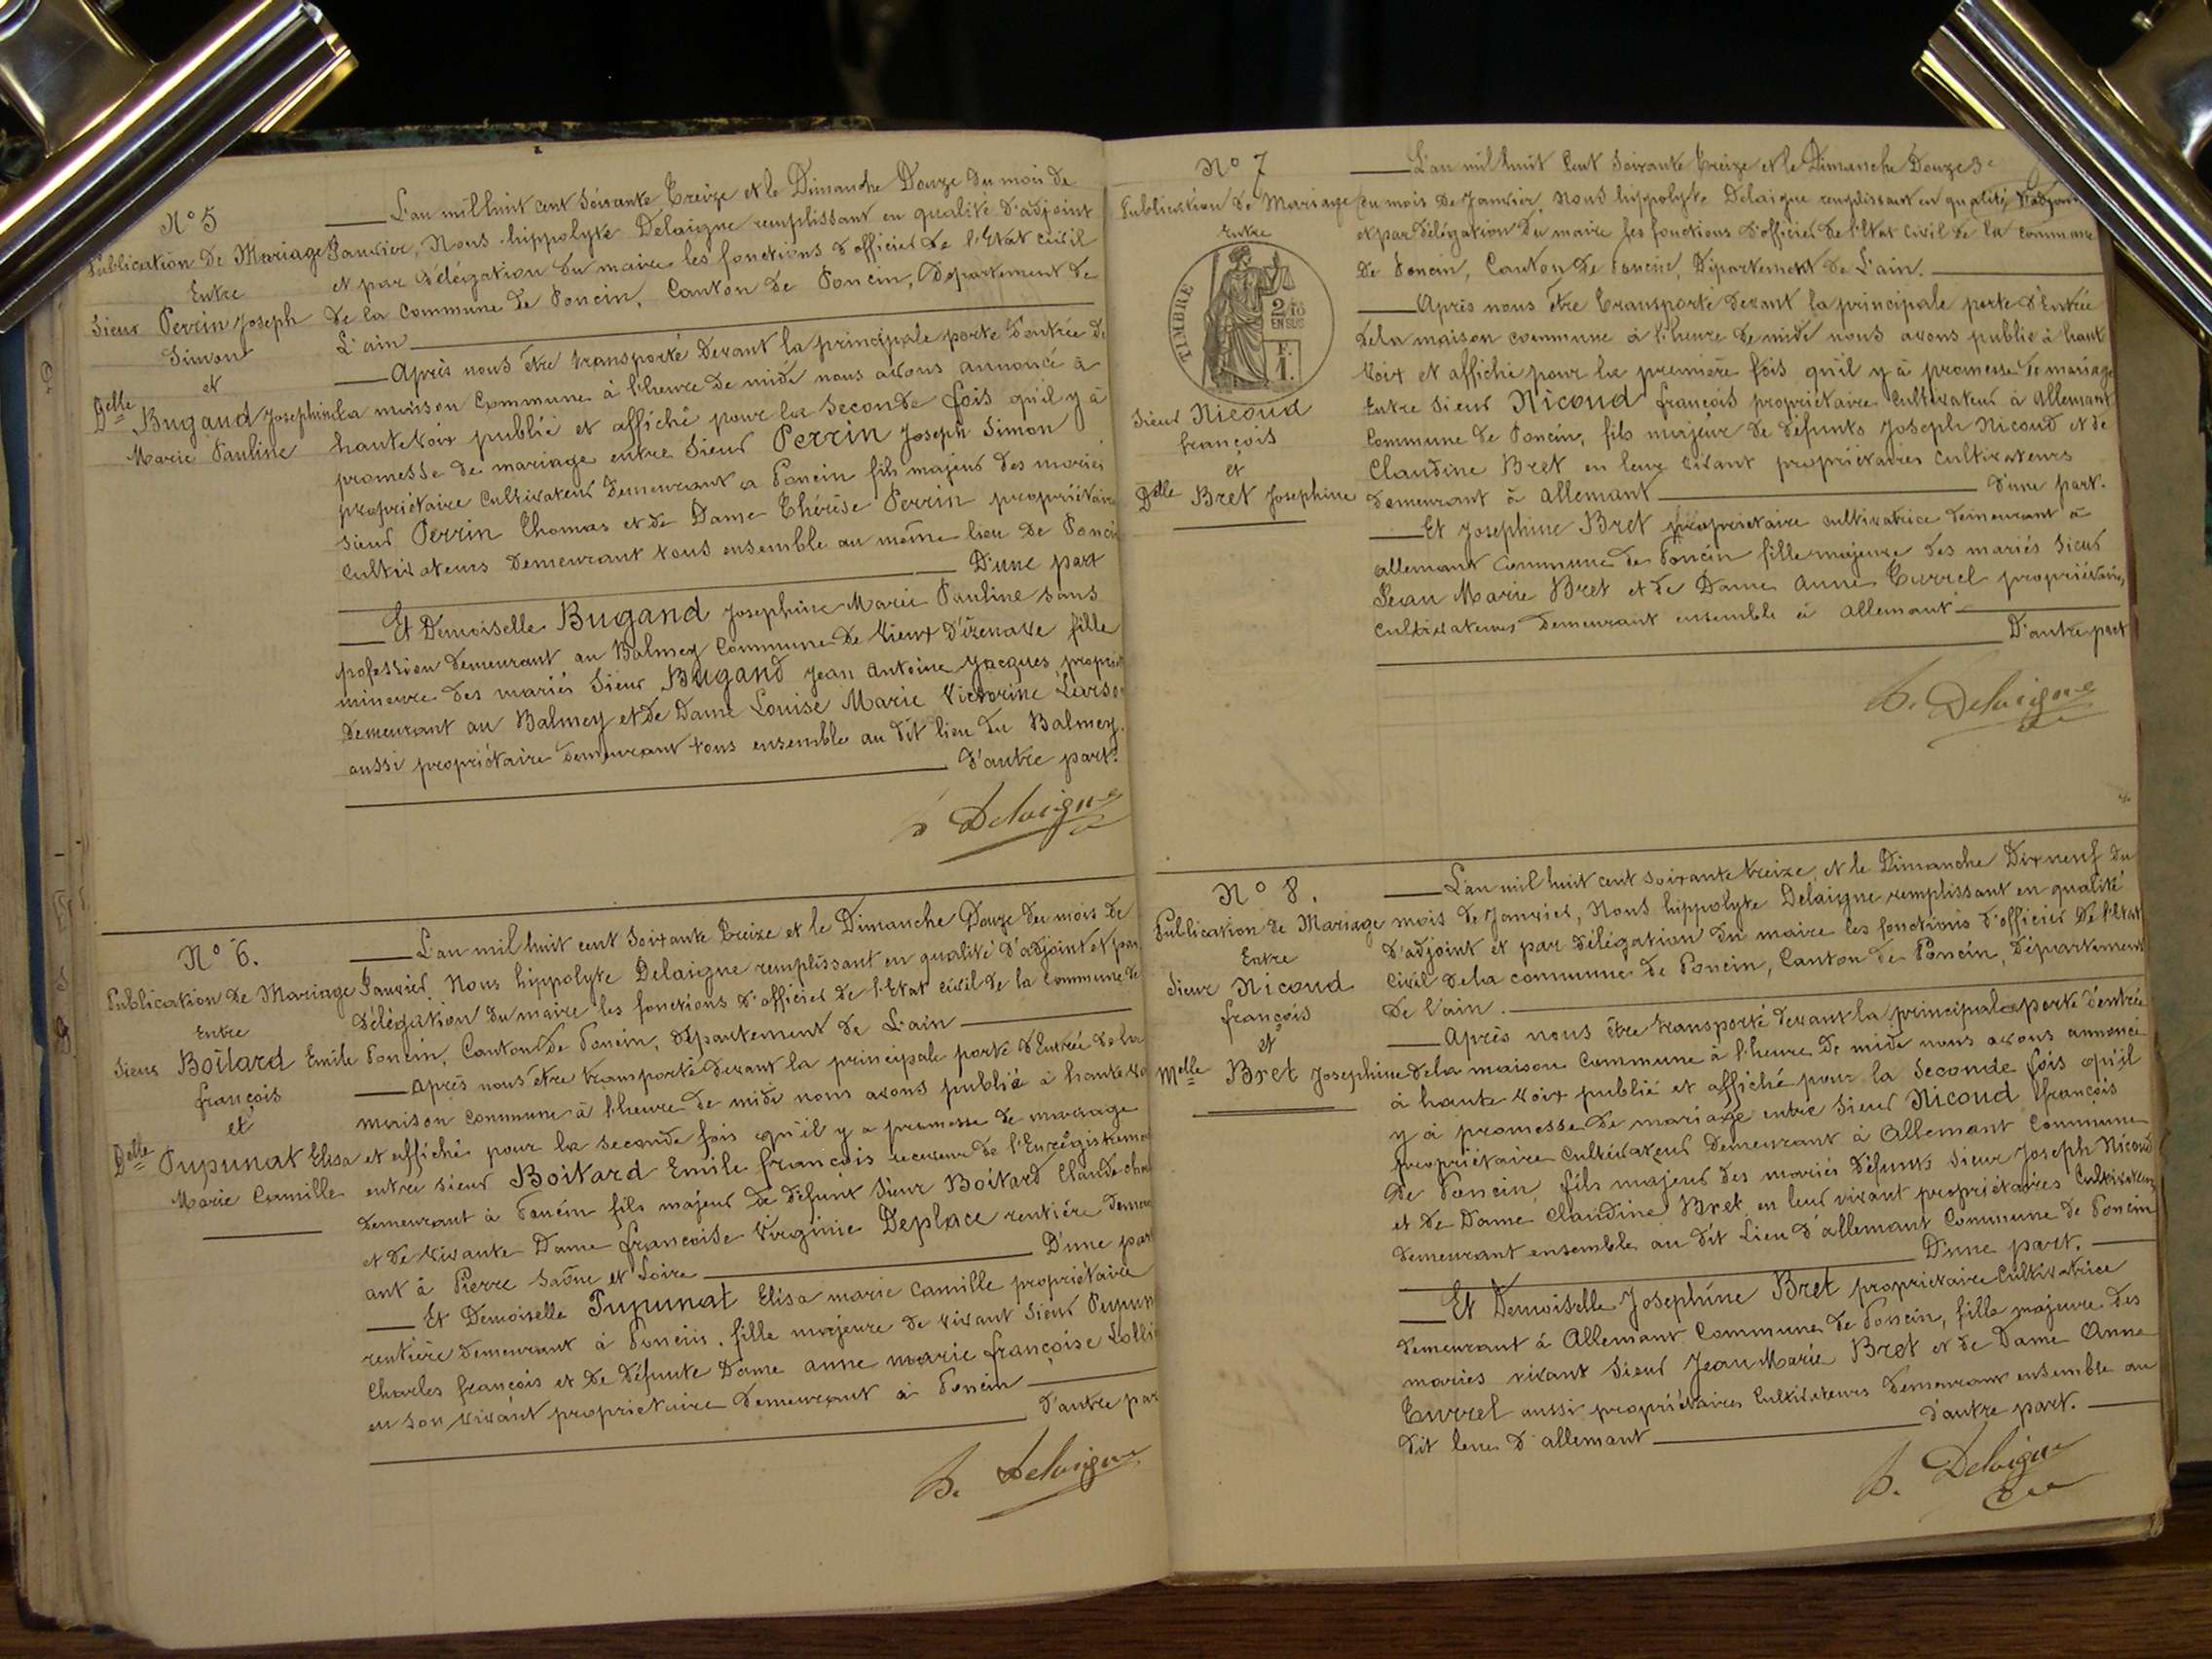 N° 5
Publication de Mariage
Entre
Sieur Perrin Joseph
Simon
et
Delle Bugand Josephine
Marie Pauline
L'an mil huit cent Soixante Treize et le Dimanche Douze du mois de
Janvier, Nous hippolyte Delaigne remplissant en qualité d'adjoint
et par délégation du maire les fonctions d'officier de l'Etat Civil
de la Commune de Poncin, Canton de Poncin, Département de
L'ain
Après nous être transporté devant la principale porte d'entrée de
la maison Commune à l'heure de midi nous avons annoncé à
haute voix publié et affiché pour la Seconde fois qu'il y à
promesse de mariage entre Sieur Perrin Joseph Simon
propriétaire Cultivateur demeurant a Poncin fils majeur des mariés
Sieur Perrin Thomas et de Dame Thérèse Perrin propriétaire
Cultivateurs demeurant tous ensemble au même lieu de Poncin
D'une part
Et Demoiselle Bugand Josephine Marie Pauline sans
pofession demeurant au Balmey Commune de Vieux d'izenave fille
mineure des mariés Sieur Bugand Jean Antoine Jacques, propriét
demeurant au Balmey et de Dame Louise Marie Victorine
aussi propriétaire demeurant tous ensemble au dit lieu du Balmey.
d'autre part.
h Delaigne
N° 6.
Publication de Mariage
Entre
Sieur Boitard Emile
françois
et
Delle Pupunat Elisa
Marie Camille
L'an mil huit cent Soixante Treize et le Dimanche Douze du mois de
Janvier, Nous hippolyte Delaigne remplissant en qualité d'adjoint et par
délégation du maire les fonctions d'officier de l'Etat civil de la Commune de
Poncin, Canton de Poncin, département de L'ain
Après nous être transporté devant la principale porte d'Entrée de la
maison commune à l'heure de midi nous avons publié à haute vo
et affiché pour la seconde fois qu'il y a promesse de mariage
entre Sieur Boitard Emile françois receveur de l'Enregistrement
demeurant à Poncin fils majeur de défunt Sieur Boitard Claude
et de vivante Dame françoise Virginie Deplace rentière demeur
ant à Pierre Saône et Loire D'une part
Et Demoiselle Pupunat Elisa marie Camille propriétaire
rentière demeurant à Poncin, fille majeure de vivant Sieur Pupun
Charles françois et de défunte Dame anne marie françoise
en son vivant propriétaire demeurant à Poncin
d'autre par
h. Delaigne
N° 7
Publication de Mariage
Entre
TIMBRE
2/10
EN SUS
F.
1.
Sieur Nicoud
françois
et
Delle Bret Josephine
L'an mil huit Cent Soixante Treize et le Dimanche Douze
du mois de Janvier, Nous hippolyte Delaigne remplissant en qualité d'adjoint
et par délégation du maire les fonctions d'officier de l'Etat Civil de la Commune
de Poncin, Canton de Poncin, Département de L'ain.
Après nous être transporté devant la principale porte d'Entrée
de la maison commune à l'heure de midi nous avons publié à haut
voix et affiché pour la première fois qu'il y à promesse de mariage
Entre Sieur Nicoud françois propriétaire Cultivateur à Allemant
Commune de Poncin, fils majeur de défunts Joseph Nicoud et de
Claudine Bret en leur vivant propriétaires Cultivateurs
demeurant à Allemant d'une part.
Et Josephine Bret propriétaire cultivatrice demeurant à
allemant commune de Poncin fille majeure des mariés Sieur
Jean Marie Bret et de Dame Anne Turrel propriétaires
Cultivateurs demeurant ensemble à Allemant
D'autre part
h. Delaigne
N° 8.
Publication de Mariage
Entre
Sieur Nicoud
françois
et
Melle Bret Josephine
L'an mil huit cent soixante treize et le Dimanche Dix neuf du
mois de Janvier, Nous hippolyte Delaigne remplissant en qualité
d'adjoint et par délégation du maire les fonctions d'officier de l'Etat
Civil de la commune de Poncin, Canton de Poncin, Département
de l'ain.
Après nous être transporté devant la principale porte d'entrée
de la maison Commune à l'heure de midi nous avons annoncé
à haute voix publié et affiché pour la Seconde fois qu'il
y à promesse de mariage entre Sieur Nicoud françois
propriétaire Cultivateur demeurant à Allemant Commune
de Poncin, fils majeur des mariés défunts Sieur Joseph Nicoud
et de Dame Claudine Bret en leur vivant propriétaires Cultivateurs
demeurant ensemble au dit Lieu d'allemant Commune de Poncin
D'une part.
Et Demoiselle Josephine Bret propriétaire Cultivatrice
demeurant à Allemant Commune de Poncin, fille majeure des
mariés vivant Sieur Jean Marie Bret et de Dame Anne
Turrel aussi propriétaires Cultivateurs demeurant ensemble au
dit lieu d'allemant d'autre part.
h. Delaigne